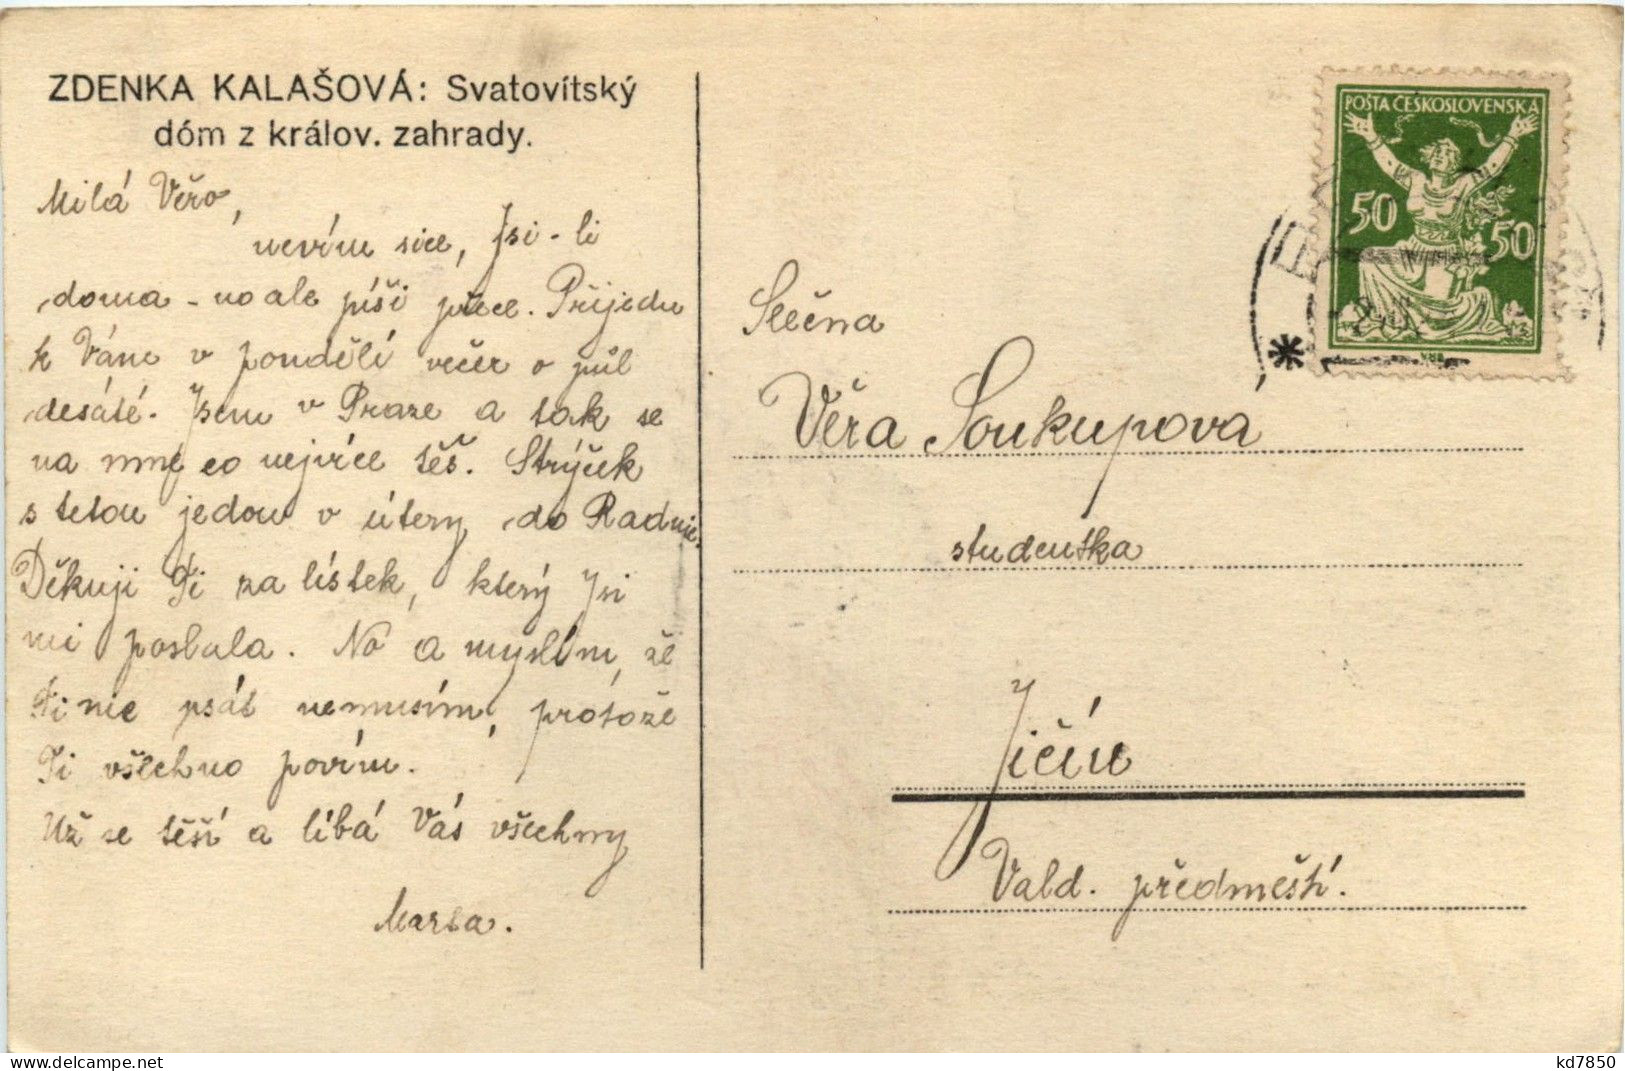 ZDENKA KALAŠOVÁ: Svatovítský
dóm z králov. zahrady.
Milá Věro,
nevím sice, Jsi-li
doma - no ale píši přece. Přijedu
k Vám v pondělí večer o půl
desáté. Jsem v Praze a tak se
na mne co nejvíce těš. Strýček
s tetou jedou v úterý do Radnic.
Děkuji Ti za lístek, který Jsi
mi poslala. No a myslím, že
Ti nic psát nemusím, protože
Ti všechno povím.
Už se těší a líbá Vás všechny
Marta.
POŠTA ČESKOSLOVENSKÁ
50
50
Slečna
Věra Soukupová
studentka
Jičín
Vald. předměstí.
kd7850